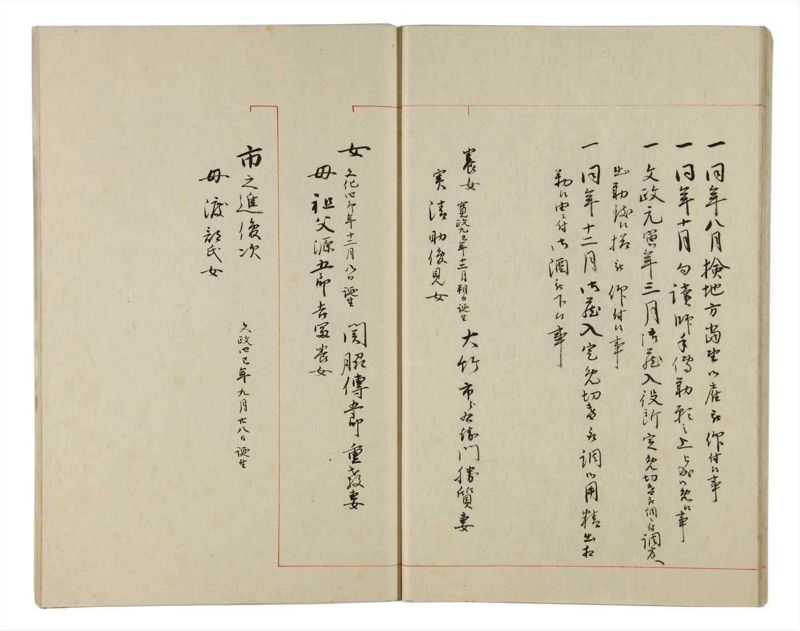 一同年八月検地方当座御雇被仰付候事
一同年十月句読師手伝勤願之上被成御免候事
一文政元寅年三月御蔵入役所定免切替取調ニ付調方へ
出勤候様被仰付候事
一同年十二月御蔵入定免切替取調御用精出相
勤候由ニ付御酒被下候事
養女 寛政九巳年十二月朔日誕生 大竹市郎右衛門勝質妻
実清助俊見女
女 文化四卯年十二月八日誕生 関昭傳五郎重義妻
母祖父源五郎吉冨養女
市之進俊次
母渡部氏女 文政四巳年九月廿八日誕生